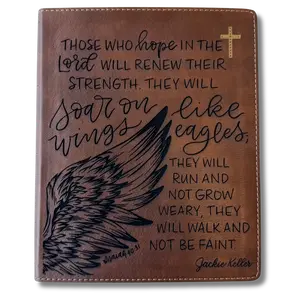 THOSE WHO hope IN THE
Lord WILL RENEW THEIR
STRENGTH. THEY WILL
soar on like
wings eagles;
THEY WILL
RUN AND
NOT GROW
WEARY, THEY
WILL WALK AND
NOT BE FAINT
Isaiah 40:31
Jackie Keller